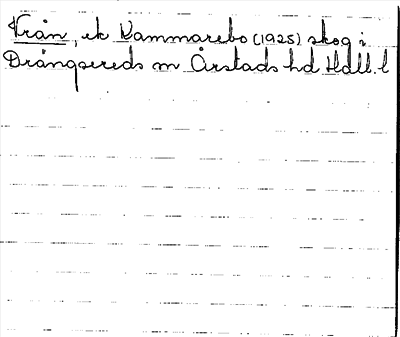 Vrån, ek Kammarebo (1925) skog i
Drängsereds sn Årstads hd Hall. l